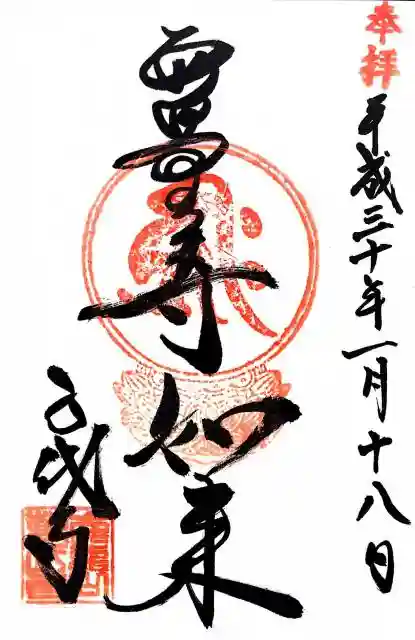 奉拝
平成三十年一月十八日
無量寿如来